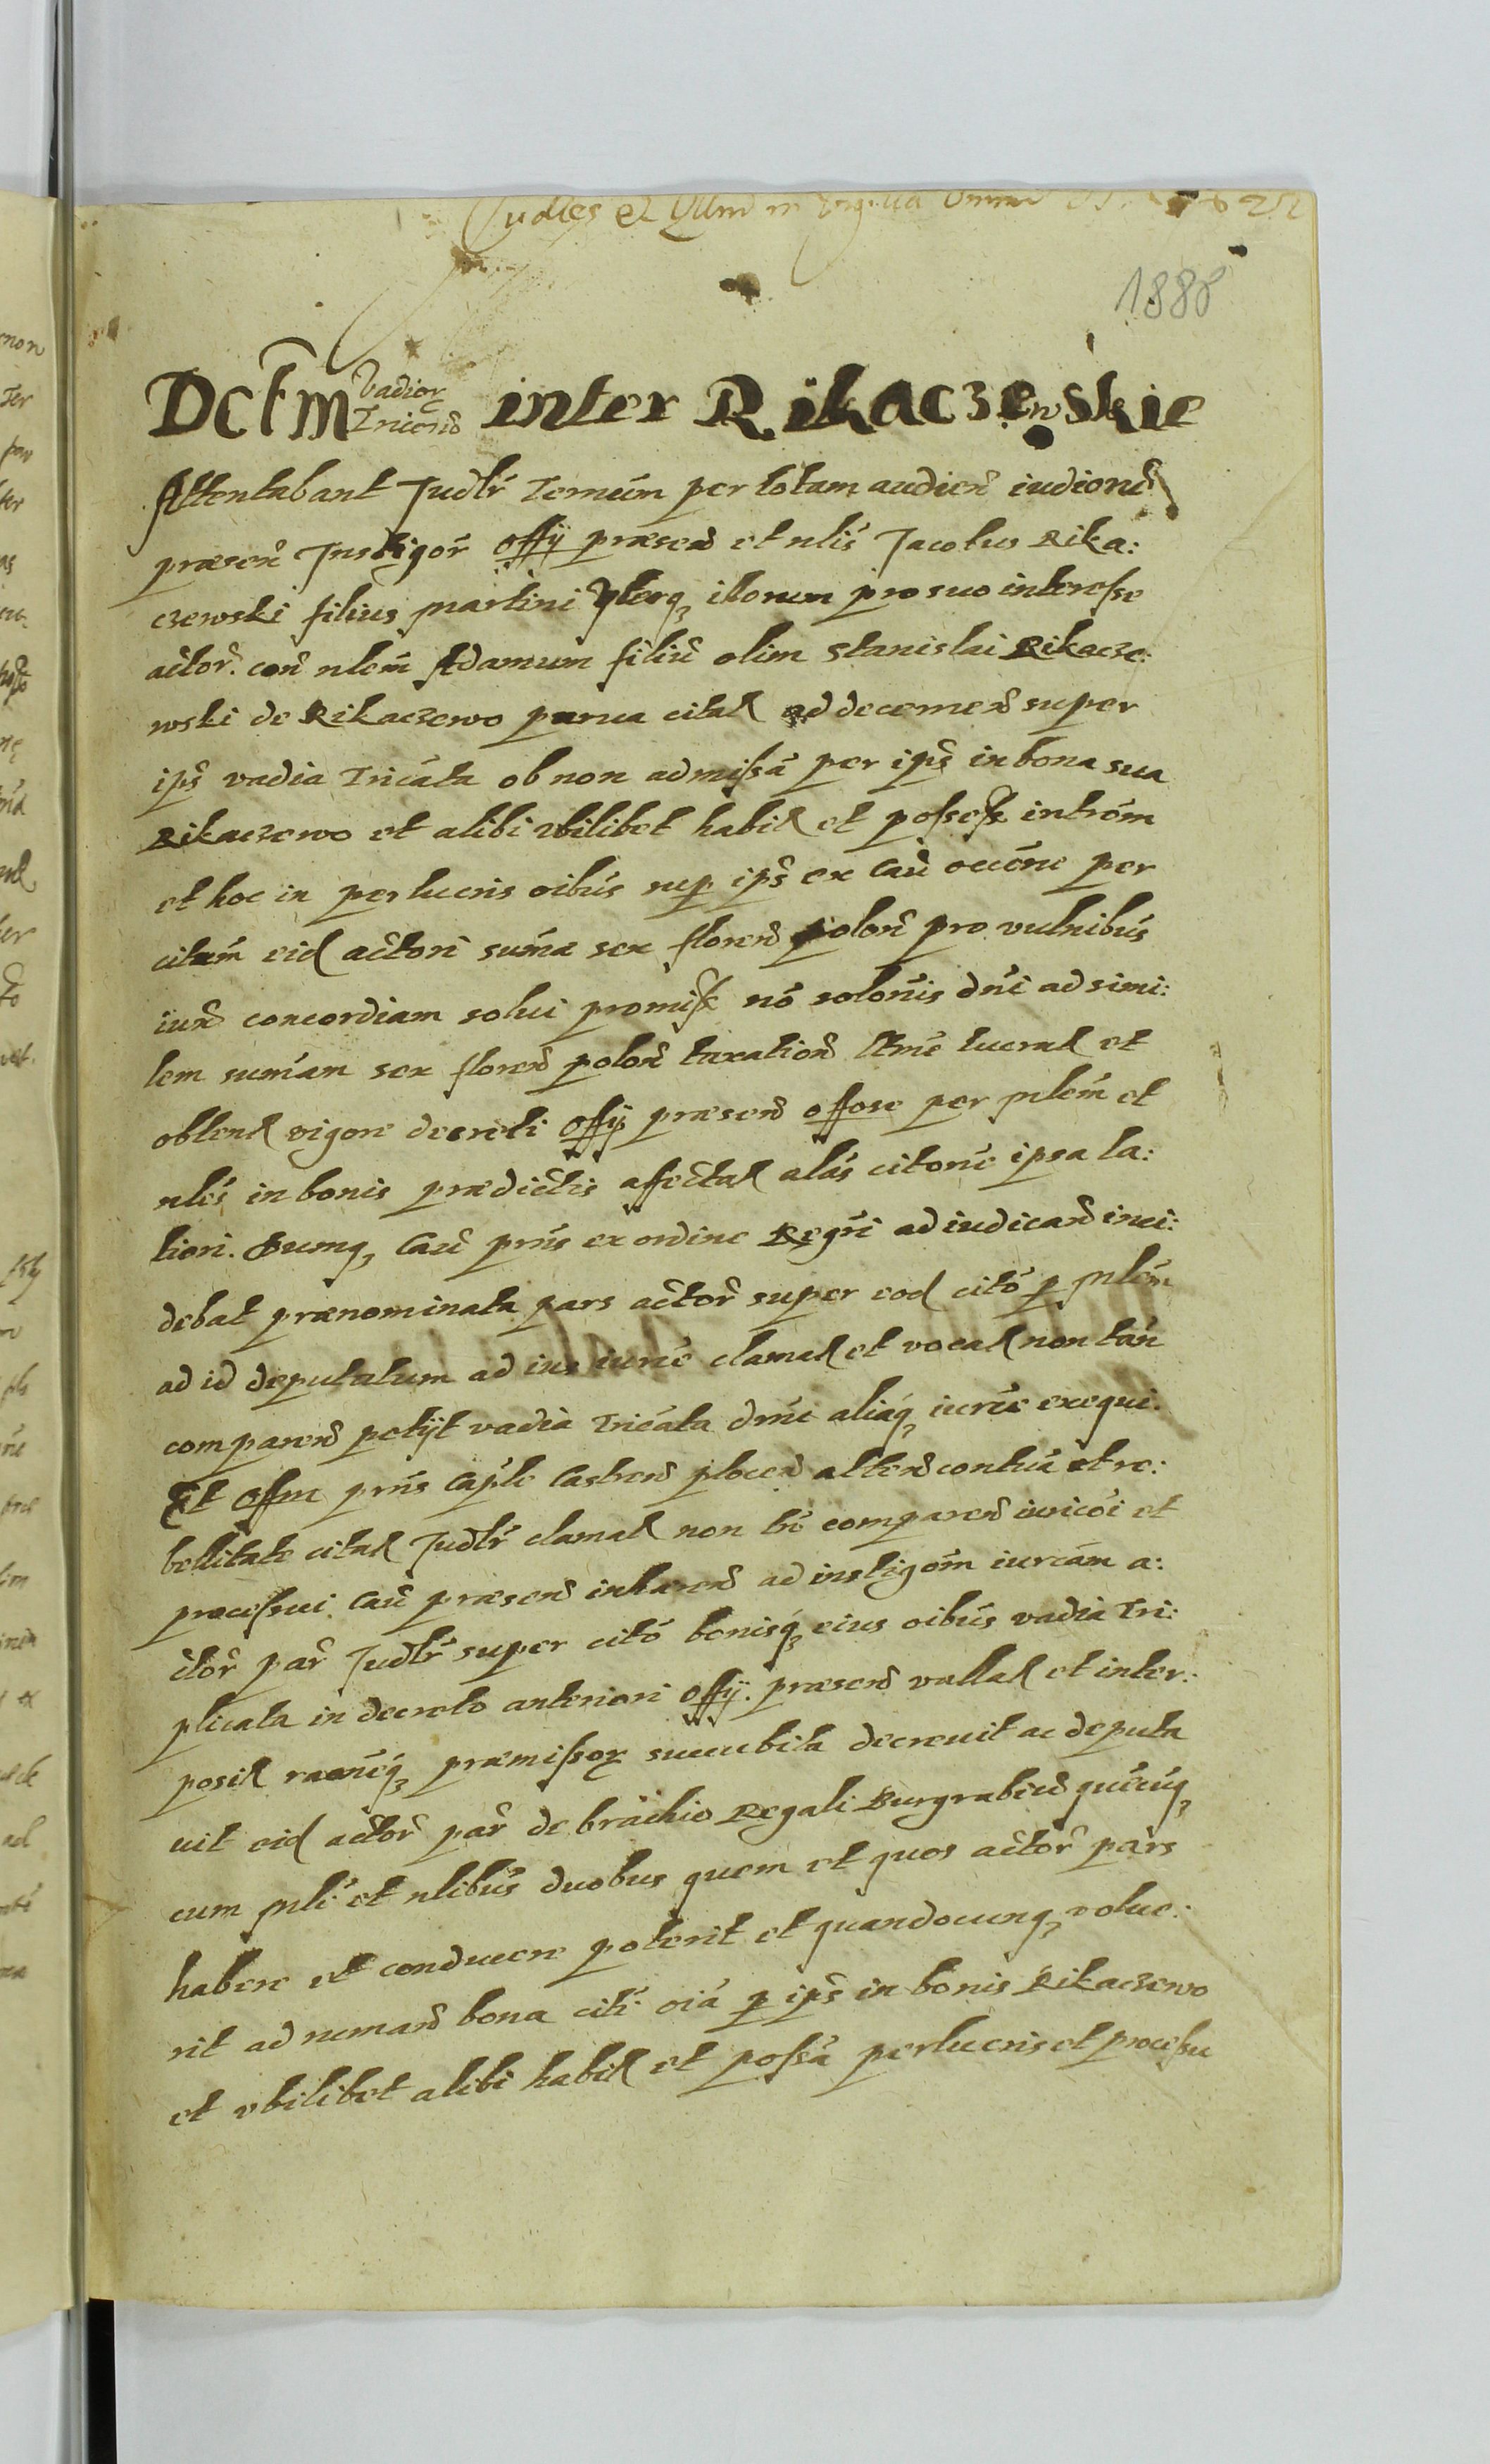 1888
Dctm̃ vadior inter Rikaczewskie
Attentabant Judlr̃ Termĩn per totam audien̄ iudionẽ
præsen̄ Instigor̃ offy præsen̄ et nl̃is Jacobus Rika:
czewski filius martini vterq illorum pro suo interesse
actor̃. con̄ nlem̃ Adamum filiũ olim Stanislai Rikacze:
wski de Rikaczewo parua citat ad decernen̄ super
ip̃s vadia Tricãta ob non admissã per ip̃s in bona sua
Rikaczewo et alibi vbilibet habit et possess introm̃
et hoc in per lucris oibũs sup ip̃s ex Caũ occõne per
citum̃ eid actori sum̃a sex floren̄ polon̄ pro vulnibũs
iux̄ concordiam solui promiss nõ solon̄is dñi ad simi:
lem sum̃am sex floren̄ polon̄ taxation̄ ltm̃e lucrat et
obtent vigore decreti offy præsen̄ offose per mlem̃ et
nles̃ in bonis prædictis affectat alãs citone ipsa la:
tiori. Dumq Caũ pñis ex ordine Regr̃i ad iudicand inci:
debat prænominata pars actor̃ super eod citõ p mlem̃
ad id deputatum ad ius iurẽ clamat et vocat non tañ
comparen̄ petijt vadia Tricãta dm̃i aliaq iurẽ exequi.
Et Offm pñis Cap̃le Castren̄ plocen̄ atten̄ contuã et re:
bellitate citat Judlr̃ clamat non tñ comparen̄ iuricõi et
processui Caũ præsen̄ inhæren̄ ad instigom̃ iurcãm a:
ctor̃ par̃ Judlr̃ super citõ bonisq eius oibũs vadia Tri:
plicata in decreto anteriori offy. præsen̄ vallat et inter:
posit raoneq præmissor succubita decreuit ac deputa
uit eid actor̃ par̃ de brachio Regali Burgrabiũ quẽcuq
cum mli et nlibũs duobus quem et quos actor̃ pars
habere et conducere poterit et quandocunq volue:
rit ad ad bona citi oiã p ip̃s in bonis Rikaczewo
et vbilibet alibi habit et possã perlucris et processu